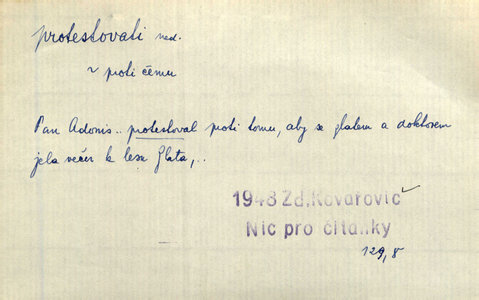 protestovati ned.
~ proti čemu
Pan Adonis.. protestoval proti tomu, aby se zlatem a doktorem
jela večer k lesu Zlata,..
1948 Zd.Kovařovic
Nic pro čítanky
129,8